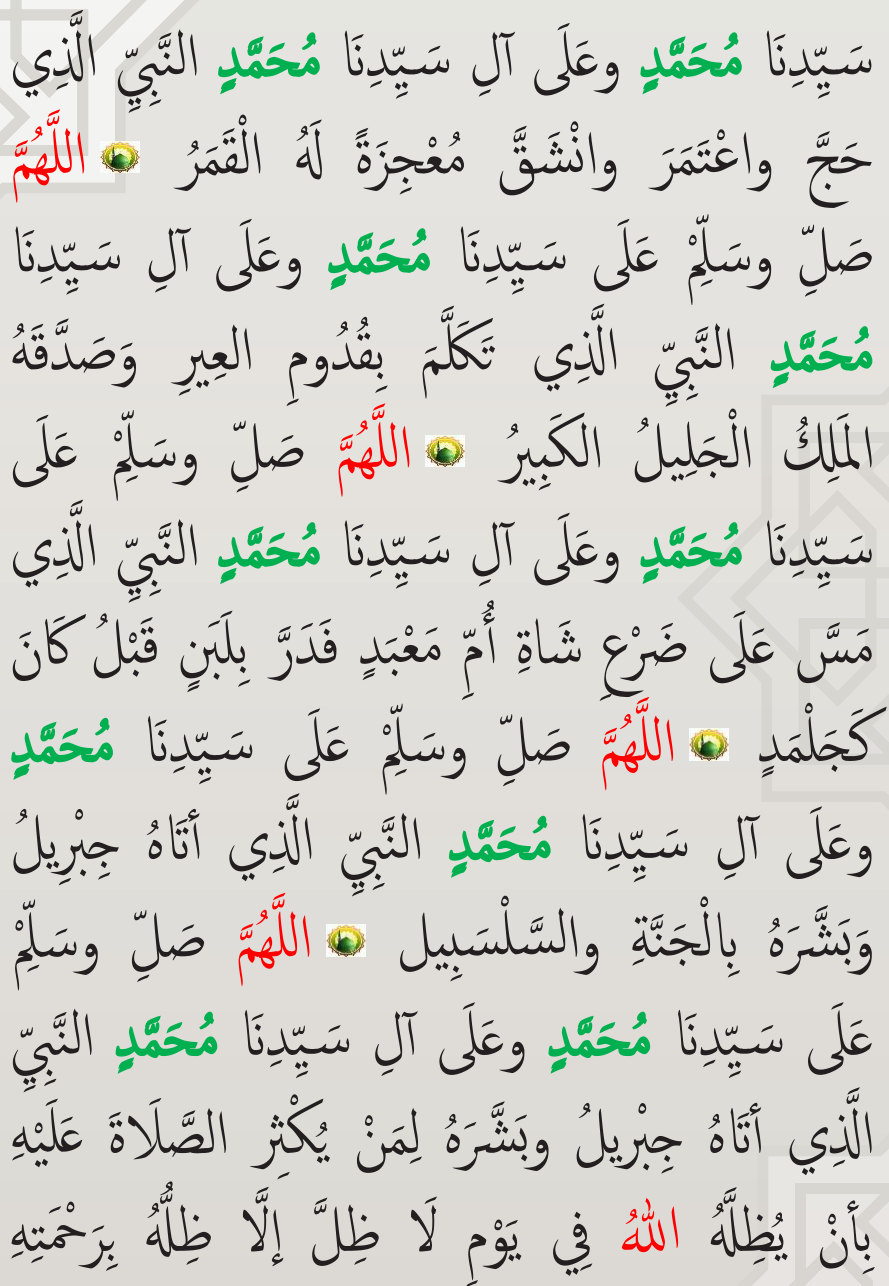 سَيِّدِنَا مُحَمَّدٍ وعَلَى آلِ سَيِّدِنَا مُحَمَّدٍ النَّبِيِّ الَّذِي
حَجَّ واعْتَمَرَ وانْشَقَّ مُعْجِزَةً لَهُ الْقَمَرُ اللَّهُمَّ
صَلِّ وسَلِّمْ عَلَى سَيِّدِنَا مُحَمَّدٍ وعَلَى آلِ سَيِّدِنَا
مُحَمَّدٍ النَّبِيِّ الَّذِي تَكَلَّمَ بِقُدُومِ العِيرِ وَصَدَّقَهُ
المَلِكُ الْجَلِيلُ الكَبِيرُ اللَّهُمَّ صَلِّ وسَلِّمْ عَلَى
سَيِّدِنَا مُحَمَّدٍ وعَلَى آلِ سَيِّدِنَا مُحَمَّدٍ النَّبِيِّ الَّذِي
مَسَّ عَلَى ضَرْعِ شَاةِ أُمِّ مَعْبَدٍ فَدَرَّ بِلَبَنٍ قَبْلُ كَانَ
كَجَلْمَدٍ اللَّهُمَّ صَلِّ وسَلِّمْ عَلَى سَيِّدِنَا مُحَمَّدٍ
وعَلَى آلِ سَيِّدِنَا مُحَمَّدٍ النَّبِيِّ الَّذِي أتَاهُ جِبْرِيلُ
وَبَشَّرَهُ بِالْجَنَّةِ والسَّلْسَبِيل اللَّهُمَّ صَلِّ وسَلِّمْ
عَلَى سَيِّدِنَا مُحَمَّدٍ وعَلَى آلِ سَيِّدِنَا مُحَمَّدٍ النَّبِيِّ
الَّذِي أتَاهُ جِبْرِيلُ وبَشَّرَهُ لِمَنْ يُكْثِر الصَّلَاةَ عَلَيْهِ
بِأنْ يُظِلَّهُ اللهُ فِي يَوْمِ لَا ظِلَّ إلَّا ظِلُّهُ بِرَحْمَتِهِ